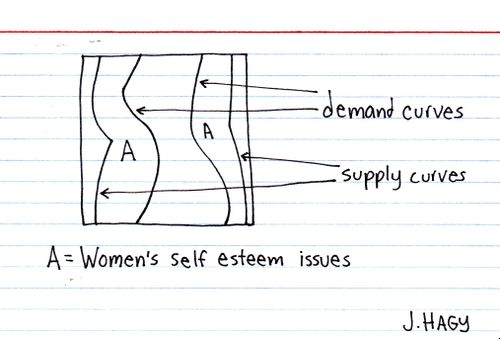 A
A
demand curves
supply curves
A = Women's self esteem issues
J. HAGY